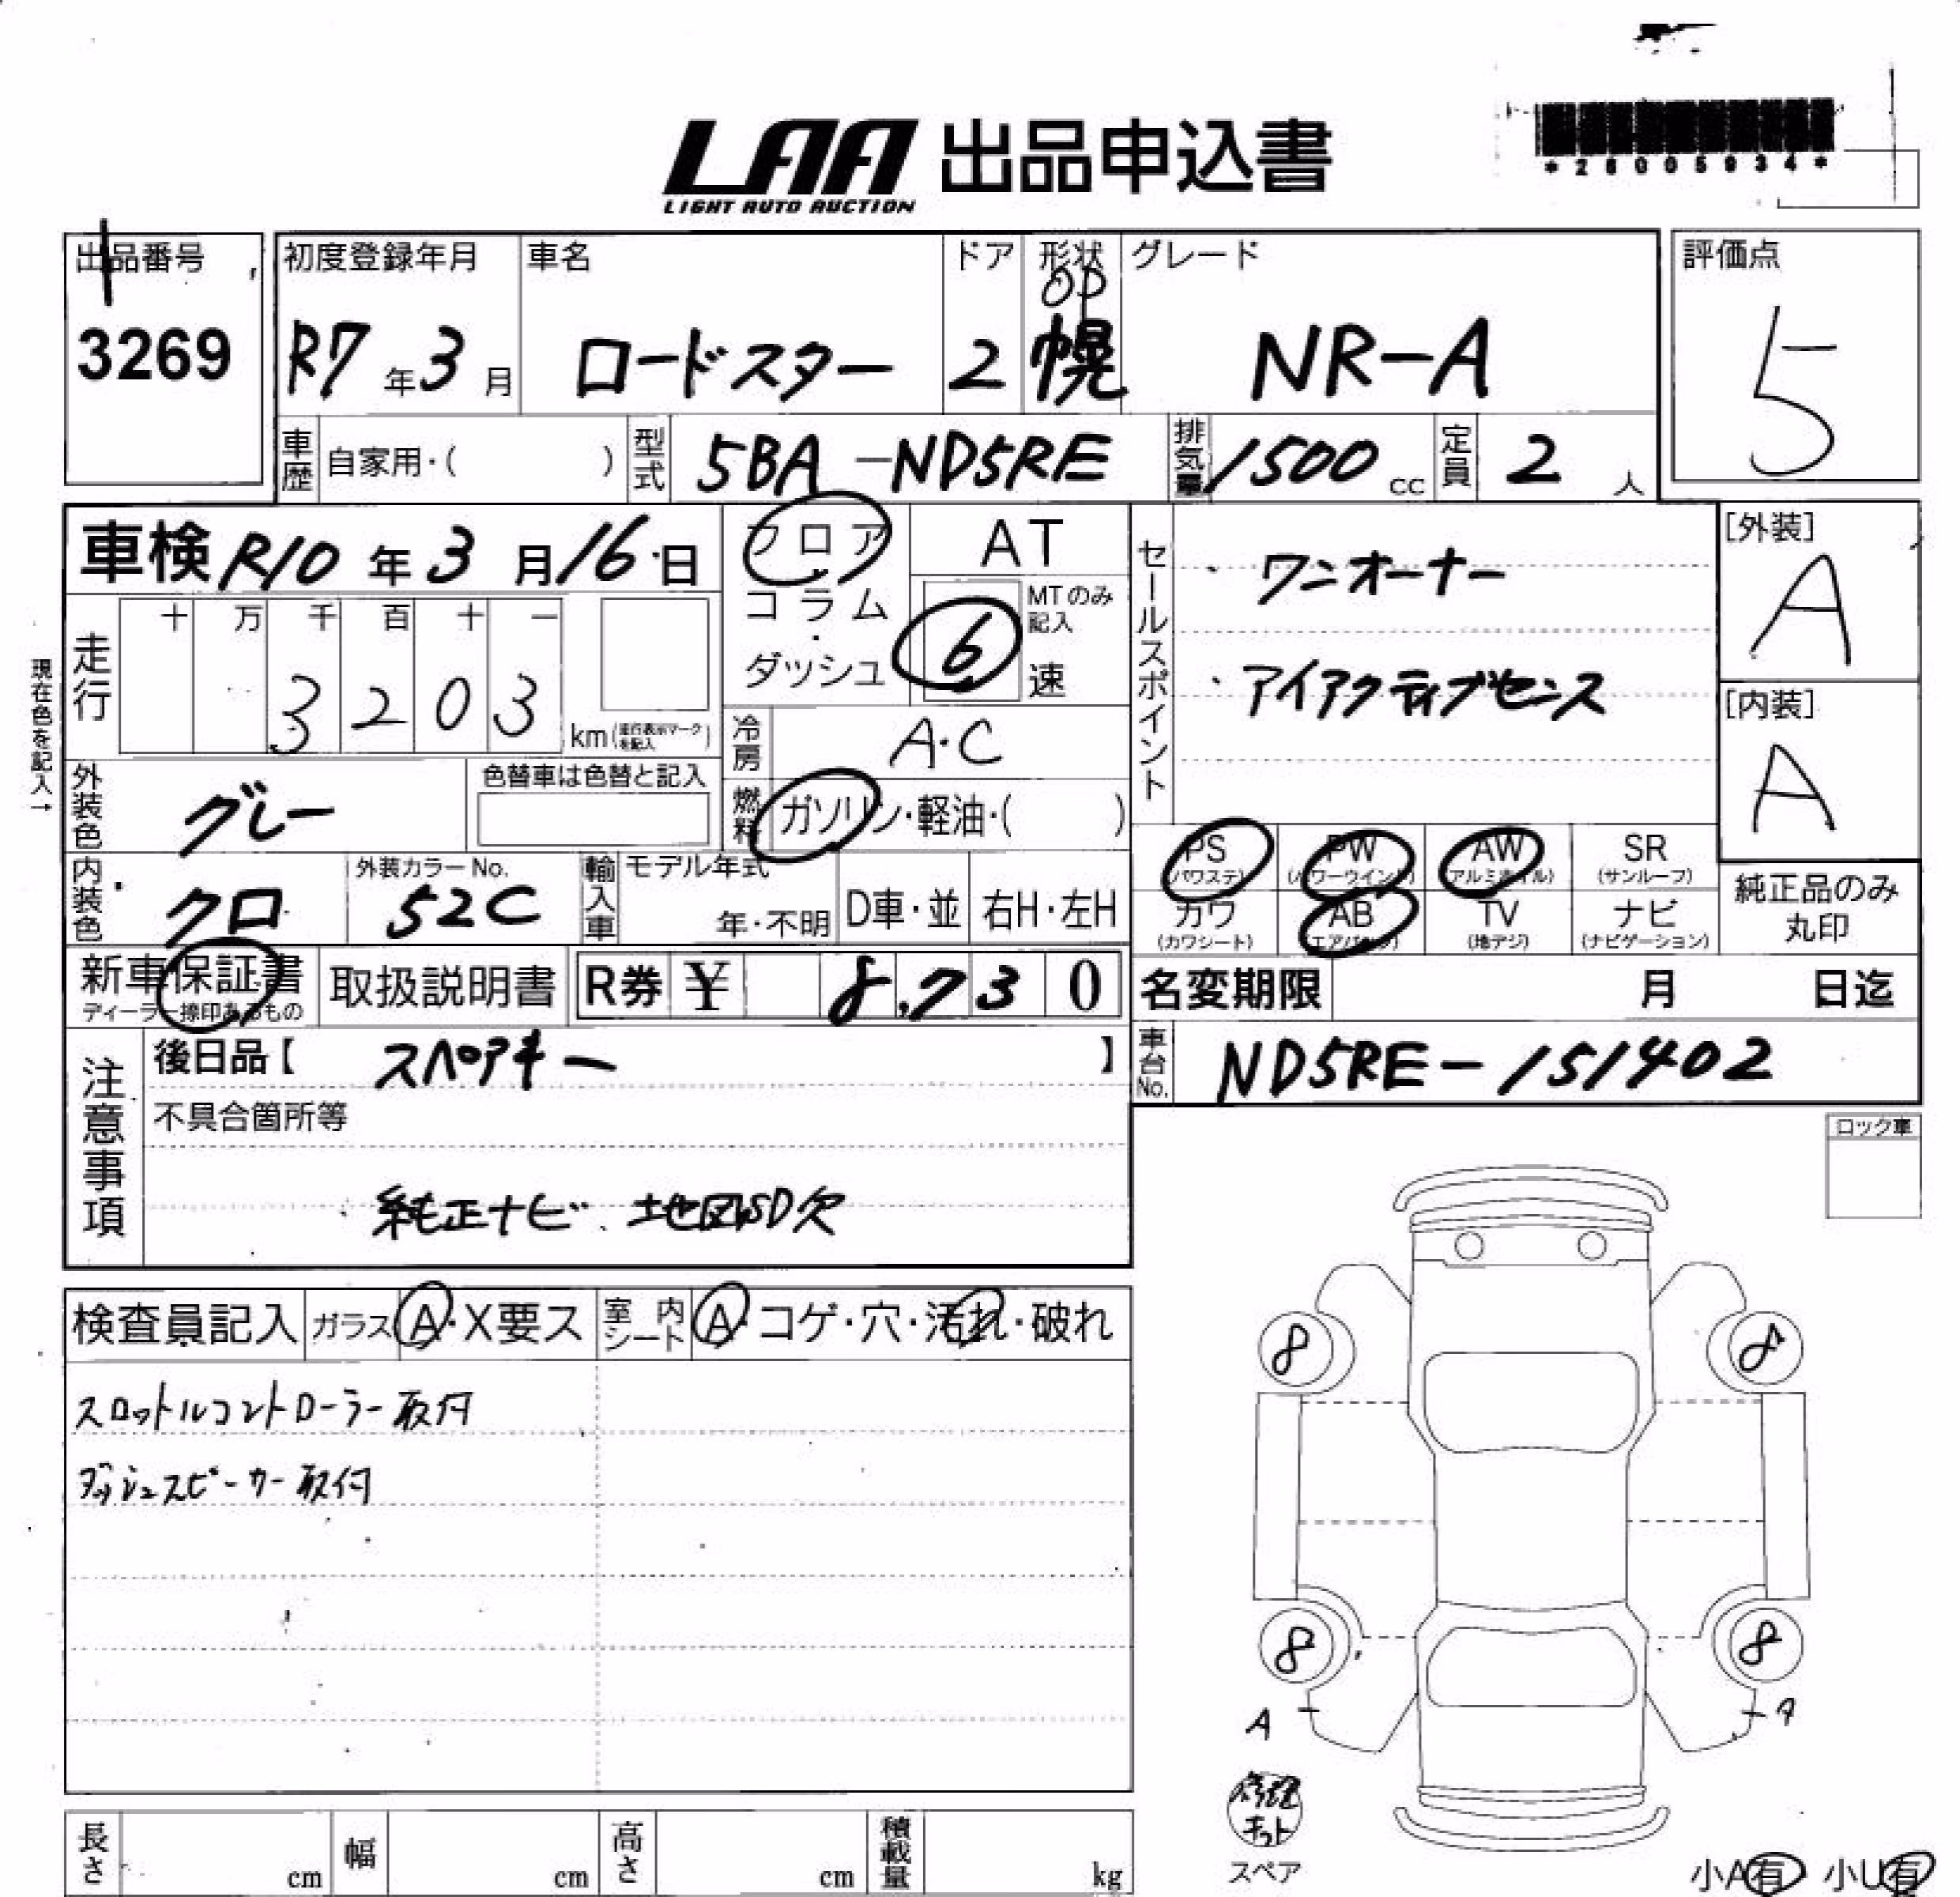 LAA 出品申込書
LIGHT AUTO AUCTION
*26005934*
出品番号
3269
初度登録年月
R7年3月
車名
ロードスター
ドア
2
形状
OP
幌
グレード
NR-A
評価点
5
車歴 自家用・( )
型式 5BA-ND5RE
排気量 1500cc
定員 2人
車検 R10年3月16日
フロア・コラム・ダッシュ
AT
MTのみ記入
6速
セールスポイント
・ワンオーナー
・アイアクティブセンス
[外装]
A
[内装]
A
現在色を記入→
走行
十 万 千 百 十 一
3 2 0 3
km(走行表示マークを記入)
冷房 A・C
外装色 グレー
色替車は色替と記入
燃料 ガソリン・軽油・( )
PS (パワステ)
PW (パワーウインド)
AW (アルミホイル)
SR (サンルーフ)
内装色 クロ
外装カラーNo.
52C
輸入車 モデル年式
年・不明
D車・並 右H・左H
カワ (カワシート)
AB (エアバッグ)
TV (地デジ)
ナビ (ナビゲーション)
純正品のみ丸印
新車保証書
ディーラー捺印あるもの
取扱説明書
R券 ¥ 8,730
名変期限 月 日迄
注意事項
後日品【 スペアキー 】
車台No. ND5RE-151402
不具合箇所等
純正ナビ 地図SD欠
ロック車
検査員記入
ガラス A・X要ス
室内シート A・コゲ・穴・汚れ・破れ
スロットルコントローラー取付
ダッシュスピーカー取付
8 8
8 8
A A
修理キット
スペア
小A有 小U有
長さ cm
幅 cm
高さ cm
積載量 kg